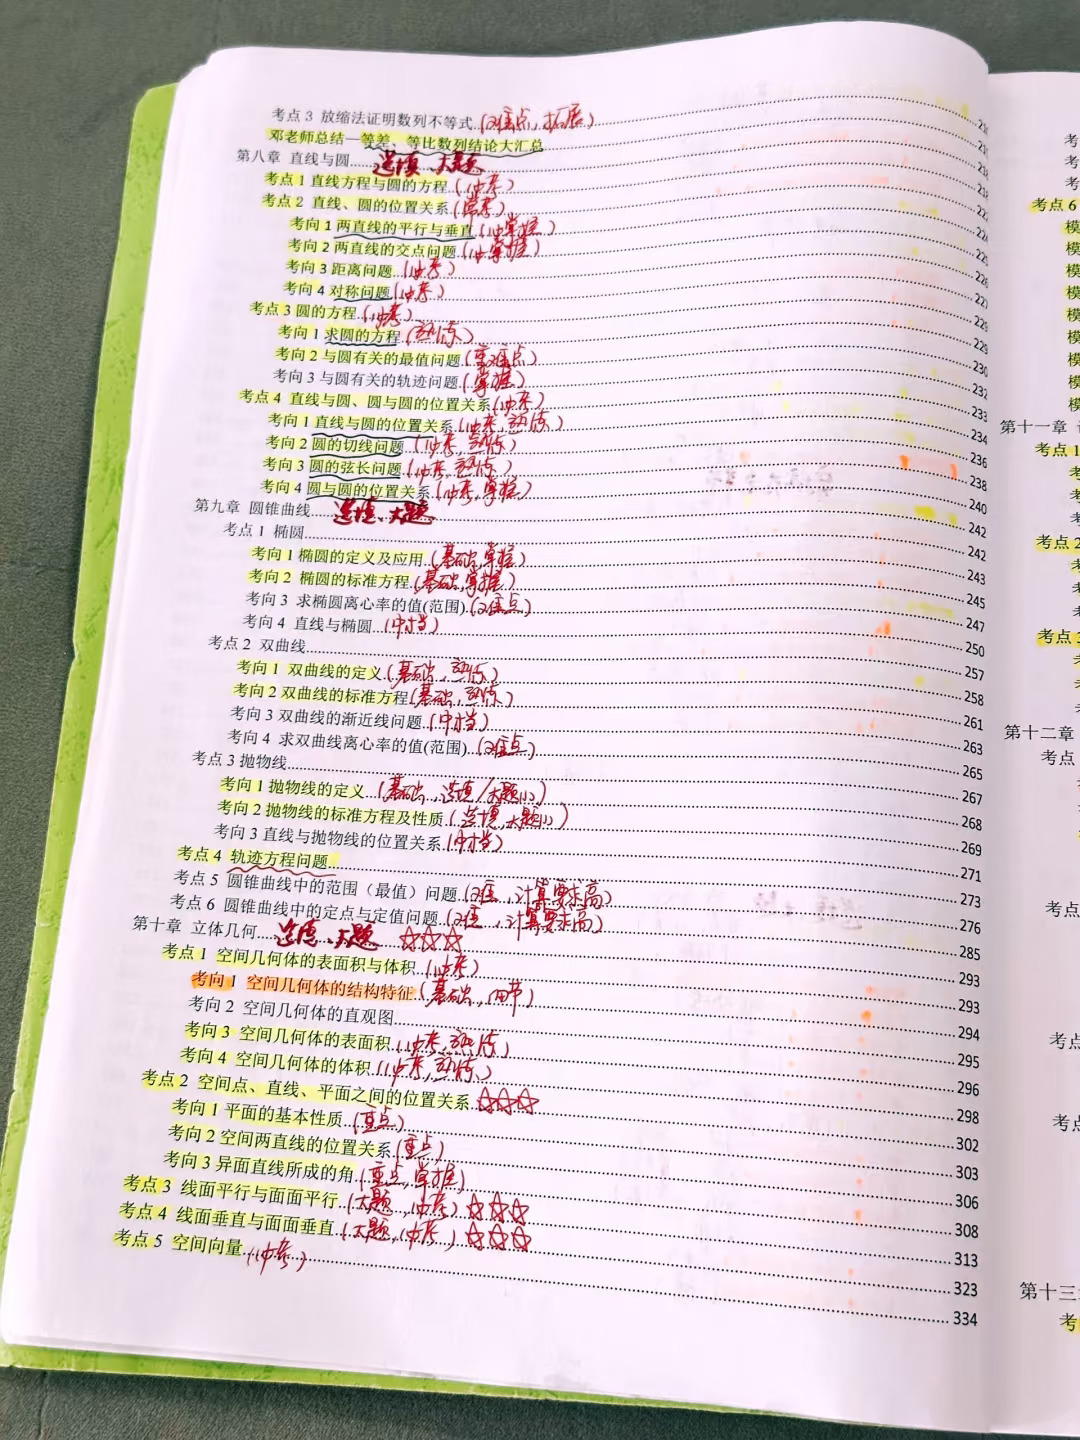 考点 3 放缩法证明数列不等式(难点,拓展)
邓老师总结—等差、等比数列结论大汇总
第八章 直线与圆 选填、大题
考点 1 直线方程与圆的方程(必考) 218
考点 2 直线、圆的位置关系(常考) 222
考向 1 两直线的平行与垂直(必掌握) 224
考向 2 两直线的交点问题(必掌握) 225
考向 3 距离问题(必考) 226
考向 4 对称问题(必考) 227
考点 3 圆的方程(必考) 229
考向 1 求圆的方程(熟练) 229
考向 2 与圆有关的最值问题(重难点) 230
考向 3 与圆有关的轨迹问题(掌握) 232
考点 4 直线与圆、圆与圆的位置关系(必考) 233
考向 1 直线与圆的位置关系(必考,熟练) 234
考向 2 圆的切线问题(必考,熟练) 236
考向 3 圆的弦长问题(必考,熟练) 238
考向 4 圆与圆的位置关系(必考,掌握) 240
第九章 圆锥曲线 选填、大题 242
考点 1 椭圆 242
考向 1 椭圆的定义及应用(基础,掌握) 243
考向 2 椭圆的标准方程(基础,掌握) 245
考向 3 求椭圆离心率的值(范围)(难点) 247
考向 4 直线与椭圆(中档) 250
考点 2 双曲线 257
考向 1 双曲线的定义(基础,熟练) 258
考向 2 双曲线的标准方程(基础,熟练) 261
考向 3 双曲线的渐近线问题(中档) 263
考向 4 求双曲线离心率的值(范围)(难点) 265
考点 3 抛物线 267
考向 1 抛物线的定义(基础,选填/大题(1)) 268
考向 2 抛物线的标准方程及性质(选填,大题(1)) 269
考向 3 直线与抛物线的位置关系(中档) 271
考点 4 轨迹方程问题 273
考点 5 圆锥曲线中的范围(最值)问题(难,计算要求高) 276
考点 6 圆锥曲线中的定点与定值问题(难,计算要求高) 285
第十章 立体几何 选填、大题 ☆☆☆ 293
考点 1 空间几何体的表面积与体积(必考) 293
考向 1 空间几何体的结构特征(基础,细节) 294
考向 2 空间几何体的直观图 295
考向 3 空间几何体的表面积(必考,熟练) 296
考向 4 空间几何体的体积(必考,熟练) 298
考点 2 空间点、直线、平面之间的位置关系 ☆☆☆ 302
考向 1 平面的基本性质(重点) 303
考向 2 空间两直线的位置关系(重点) 306
考向 3 异面直线所成的角(重点,掌握) 308
考点 3 线面平行与面面平行(大题,必考)☆☆☆ 313
考点 4 线面垂直与面面垂直(大题,必考)☆☆☆ 323
考点 5 空间向量(必考) 334
考
考
考
考点 6
模
模
模
模
模
模
模
模
模
第十一章
考点 1
考点 2
考点 3
第十二章
考点
考点
考点
考点
第十三
考